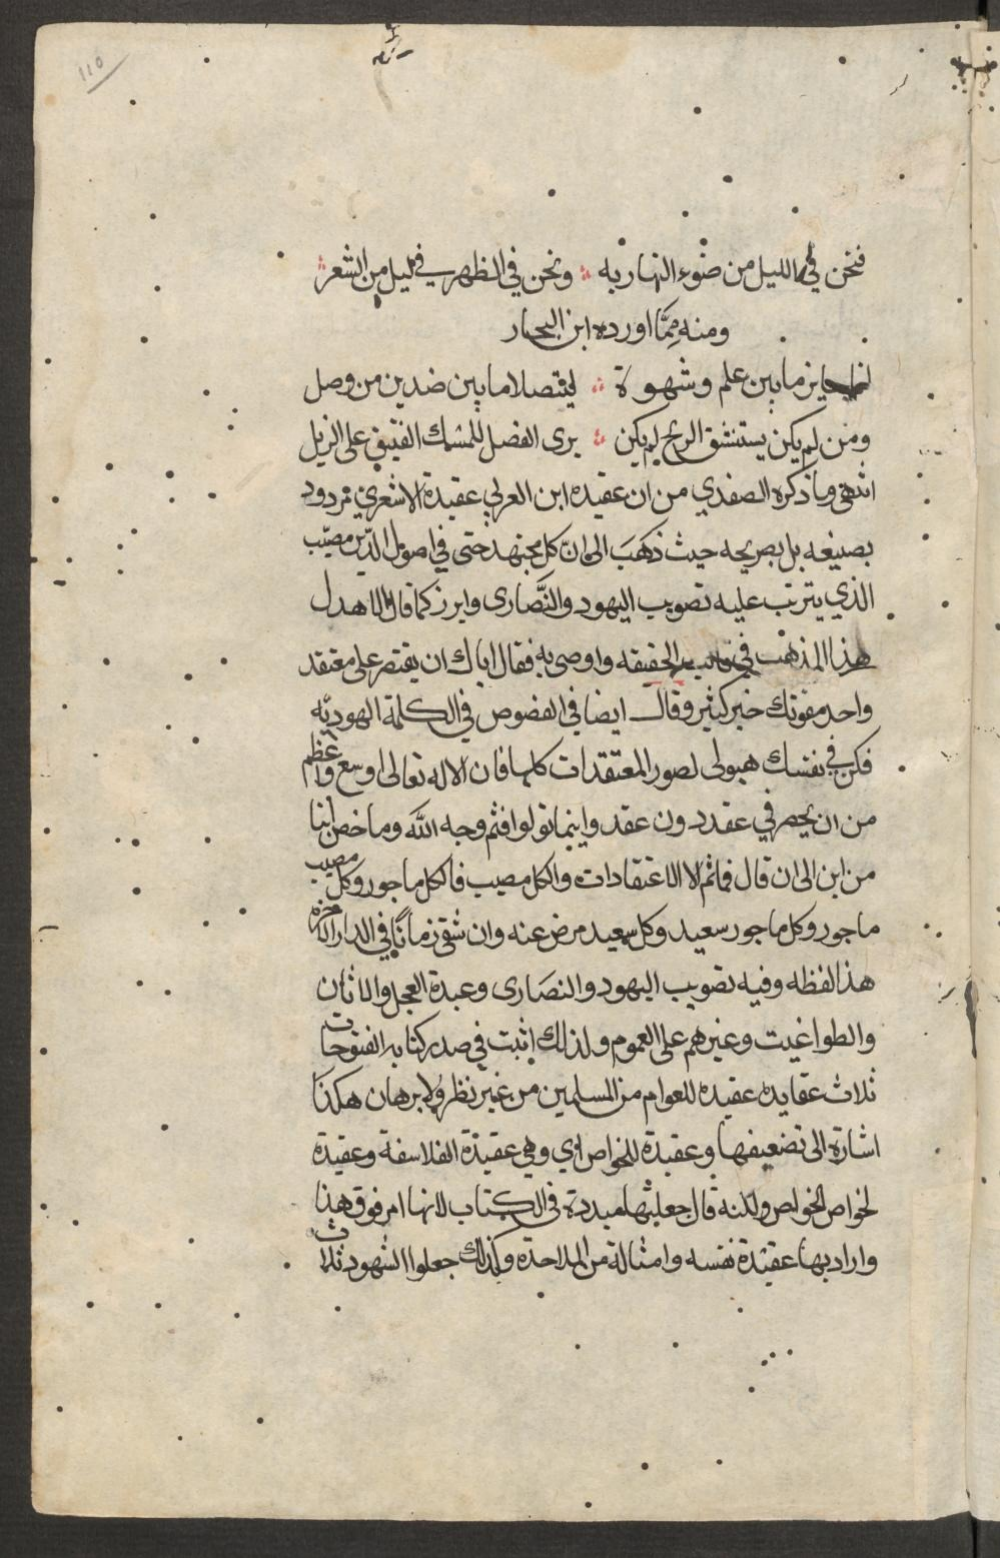 ١١٥
فنحن في الليل من ضوء النهار به ونحن في الظهر في ليل من الشعر
ومنه مما اورده ابن النجار
ما بين علم وشهوة ليتصلا ما بين ضدين من وصل
ومن لم يكن يستنشق الريح لم يكن يرى الفضل للمسك الفتيق على الزبل
انتهى وما ذكره الصفدي من ان عقيده ابن العربي عقيدة الاشعري مردود
بصنيعه بل بصريحه حيث ذهب الى ان كل مجتهد حتى في اصول الدين مصيب
الذي يترتب عليه تصويب اليهود والنصارى وابرز كما قال الاهدل
هذا المذهب في قالب الحقيقه واوصى به فقال اياك ان يقتصر على معتقد
واحد مفوتك خير كثير وقال ايضا في الفصوص في الكلمة الهوديه
فكن في نفسك هيولى لصور المعتقدات كلها فان الاله تعالى اوسع واعظم
من ان يحصر في عقد دون عقد واينما تولوا فثم وجه الله وما خص اينا
من اين الى ان قال فما ثم الا الاعتقادات والكل مصيب فالكل ماجور وكل مصيب
ماجور وكل ماجور سعيد وكل سعيد مرض عنه وان شقى زمانا في الدار الاخره
هذا لفظه وفيه تصويب اليهود والنصارى وعبدة العجل والاثان
والطواغيت وغيرهم على العموم ولذلك اثبت في صدر كتابه الفتوحات
ثلاث عقايده عقيده للعوام من المسلمين من غير نظر ولا برهان هكذا
اشارة الى تضعيفها وعقيدة للخواص اي وهي عقيدة الفلاسفة وعقيدة
لخواص الخواص ولكنه قال جعلتها مبددة في الكتاب لانها امر فوق هذا
واراد بها عقيدة نفسه وامثاله من الملاحدة وكذلك جعلوا الشهود ثلاث